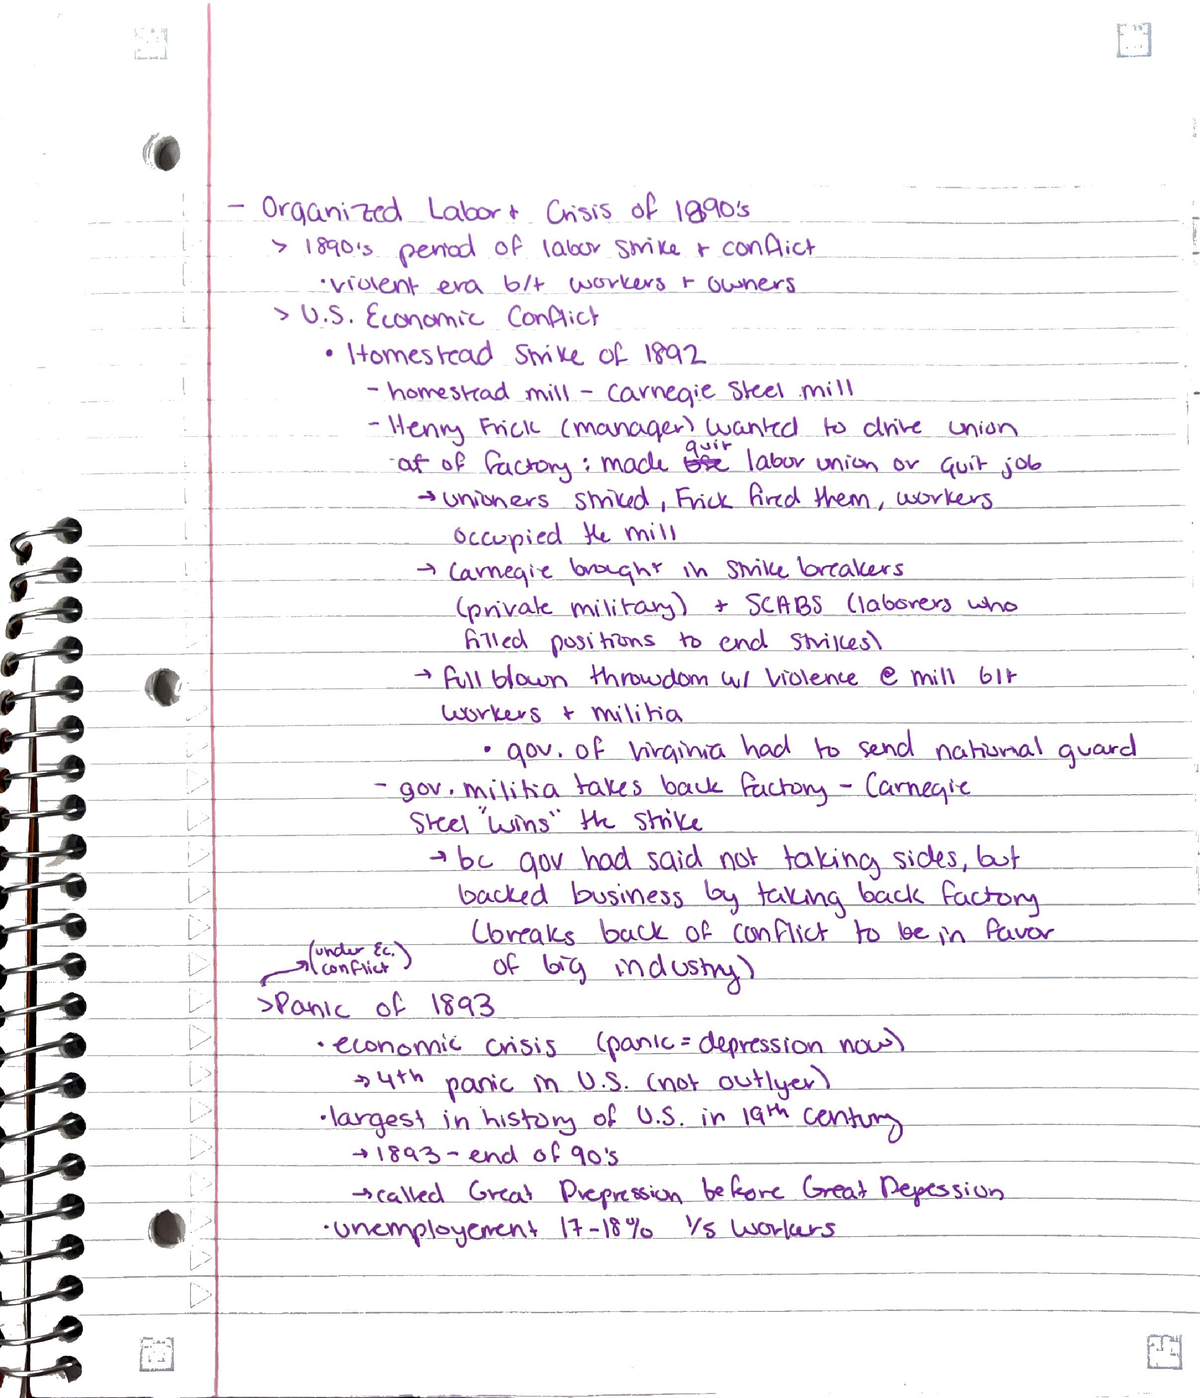 - Organized Labor + Crisis of 1890's
> 1890's period of labor strike + conflict
• violent era b/t workers + owners
> U.S. Economic Conflict
• Homestead Strike of 1892
- homestead mill - Carnegie Steel mill
- Henry Frick (manager) wanted to drive union
of of factory: made quit labor union or quit job
→ unioners striked, Frick fired them, workers
occupied the mill
→ Carnegie brought in strike breakers
(private military) + SCABS (laborers who
filled positions to end strikes)
→ full blown throwdom w/ violence @ mill b/t
workers + militia
• gov. of Virginia had to send national guard
- gov. militia takes back factory - Carnegie
Steel "wins" the strike
→ bc gov had said not taking sides, but
backed business by taking back factory
(breaks back of conflict to be in favor
of big industry)
(under Ec. conflict)
> Panic of 1893
• economic crisis (panic = depression now)
→ 4th panic in U.S. (not outlyer)
• largest in history of U.S. in 19th century
→ 1893 - end of 90's
→ called Great Drepression before Great Depession
• unemployement 17-18% 1/5 workers